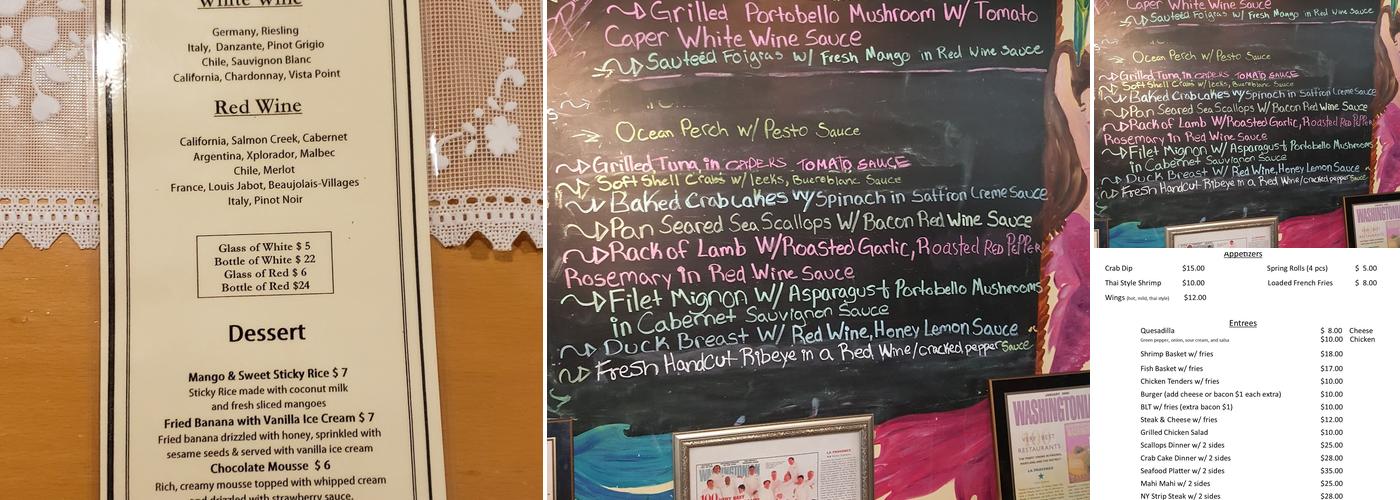 White Wine
Germany, Riesling
Italy, Danzante, Pinot Grigio
Chile, Sauvignon Blanc
California, Chardonnay, Vista Point
Red Wine
California, Salmon Creek, Cabernet
Argentina, Xplorador, Malbec
Chile, Merlot
France, Louis Jabot, Beaujolais-Villages
Italy, Pinot Noir
Glass of White $ 5
Bottle of White $ 22
Glass of Red $ 6
Bottle of Red $24
Dessert
Mango & Sweet Sticky Rice $ 7
Sticky Rice made with coconut milk
and fresh sliced mangoes
Fried Banana with Vanilla Ice Cream $ 7
Fried banana drizzled with honey, sprinkled with
sesame seeds & served with vanilla ice cream
Chocolate Mousse $ 6
Rich, creamy mousse topped with whipped cream
and drizzled with strawberry sauce.
Grilled Portobello Mushroom W/ Tomato
Caper White Wine Sauce
Sauteéd Foigras W/ Fresh Mango in Red Wine Sauce
Ocean Perch W/ Pesto Sauce
Grilled Tuna in CAPERS TOMATO SAUCE
Soft Shell Crabs w/ leeks, Buereblanc Sauce
Baked Crabcakes W/ Spinach in Saffron Creme Sauce
Pan Seared Sea Scallops W/ Bacon Red Wine Sauce
Rack of Lamb W/Roasted Garlic, Roasted Red Pepper
Rosemary in Red Wine Sauce
Filet Mignon W/ Asparagus + Portobello Mushrooms
in Cabernet Sauvignon Sauce
Duck Breast W/ Red Wine, Honey Lemon Sauce
Fresh HandCut Ribeye in a Red Wine/cracked pepper Sauce
WASHINGTONIAN
VERY BEST
RESTAURANTS
LA PROVENCE
WASHINGTONIAN
100 VERY BEST
Caper White Wine Sauce
Sauteéd Foigras W/ Fresh Mango in Red Wine Sauce
Ocean Perch W/ Pesto Sauce
Grilled Tuna in CAPERS TOMATO SAUCE
Soft Shell Crabs w/ leeks, Buereblanc Sauce
Baked Crabcakes W/ Spinach in Saffron Creme Sauce
Pan Seared Sea Scallops W/ Bacon Red Wine Sauce
Rack of Lamb W/Roasted Garlic, Roasted Red Pepper
Rosemary in Red Wine Sauce
Filet Mignon W/ Asparagus + Portobello Mushrooms
in Cabernet Sauvignon Sauce
Duck Breast W/ Red Wine, Honey Lemon Sauce
Fresh HandCut Ribeye in a Red Wine/cracked pepper Sauce
WASHINGTON
Appetizers
Crab Dip $15.00 Spring Rolls (4 pcs) $ 5.00
Thai Style Shrimp $10.00 Loaded French Fries $ 8.00
Wings (hot, mild, thai style) $12.00
Entrees
Quesadilla $ 8.00 Cheese
Green pepper, onion, sour cream, and salsa $10.00 Chicken
Shrimp Basket w/ fries $18.00
Fish Basket w/ fries $17.00
Chicken Tenders w/ fries $10.00
Burger (add cheese or bacon $1 each extra) $10.00
BLT w/ fries (extra bacon $1) $10.00
Steak & Cheese w/ fries $12.00
Grilled Chicken Salad $10.00
Scallops Dinner w/ 2 sides $25.00
Crab Cake Dinner w/ 2 sides $28.00
Seafood Platter w/ 2 sides $35.00
Mahi Mahi w/ 2 sides $25.00
NY Strip Steak w/ 2 sides $28.00